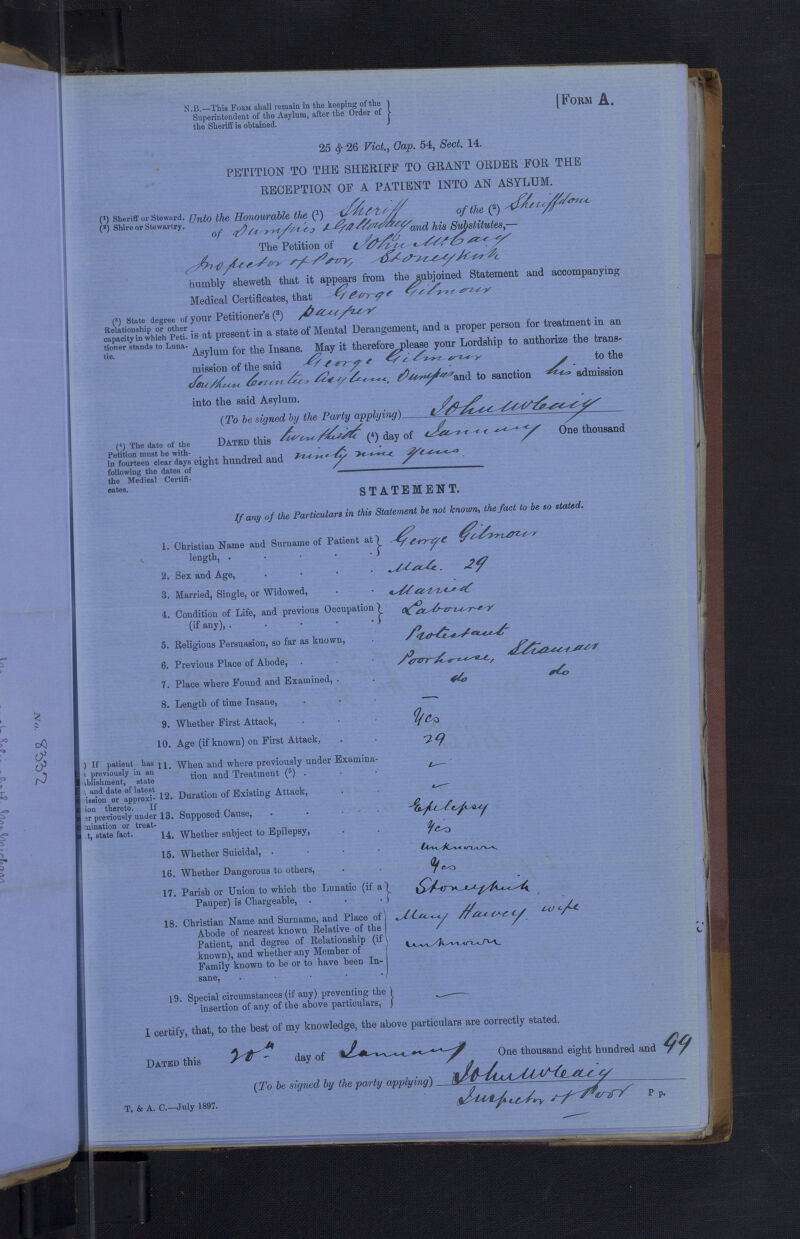 N.B.—This Form shall remain in the keeping of the
Superintendent of the Asylum, after the Order of
the Sheriff is obtained.
[Form A.
25 & 26 Vict., Cap. 54, Sect. 14.
PETITION TO THE SHERIFF TO GRANT ORDER FOR THE
RECEPTION OF A PATIENT INTO AN ASYLUM.
(1) Sheriff or Steward.
(2) Shire or Stewartry.
Unto the Honourable the (1) Sheriff of the (2) Sheriffdom
of Dumfries & Galloway and his Substitutes,—
The Petition of John McCaig
Inspector of Poor, Stoneykirk
humbly sheweth that it appears from the subjoined Statement and accompanying
Medical Certificates, that George Gilmour
(3) State degree of
Relationship or other
capacity in which Peti-
tioner stands to Luna-
tic.
your Petitioner's (3) pauper
is at present in a state of Mental Derangement, and a proper person for treatment in an
Asylum for the Insane. May it therefore please your Lordship to authorize the trans-
mission of the said George Gilmour to the
Southern Counties Asylum, Dumfries and to sanction his admission
into the said Asylum.
(To be signed by the Party applying) John McCaig
(4) The date of the
Petition must be with-
in fourteen clear days
following the dates of
the Medical Certifi-
cates.
Dated this (4) day of January One thousand
eight hundred and ninety nine years.
STATEMENT.
If any of the Particulars in this Statement be not known, the fact to be so stated.
1. Christian Name and Surname of Patient at
length, . George Gilmour
2. Sex and Age, Male. 29
3. Married, Single, or Widowed, Married
4. Condition of Life, and previous Occupation
(if any), . Labourer
5. Religious Persuasion, so far as known, Protestant
6. Previous Place of Abode, . Poorhouse, Stranraer
7. Place where Found and Examined, . do do
8. Length of time Insane, —
9. Whether First Attack, Yes
10. Age (if known) on First Attack, 29
) If patient has
previously in an
ablishment, state
and date of latest
ission or approxi-
ion thereto. If
er previously under
mination or treat-
t, state fact.
11. When and where previously under Examina-
tion and Treatment (5) .
12. Duration of Existing Attack,
13. Supposed Cause, . Epilepsy
14. Whether subject to Epilepsy, Yes
15. Whether Suicidal, . unknown
16. Whether Dangerous to others, Yes
17. Parish or Union to which the Lunatic (if a
Pauper) is Chargeable, . Stoneykirk
18. Christian Name and Surname, and Place of
Abode of nearest known Relative of the
Patient, and degree of Relationship (if
known), and whether any Member of
Family known to be or to have been In-
sane, .
Mary Harvey, wife
unknown
19. Special circumstances (if any) preventing the
insertion of any of the above particulars, —
I certify, that, to the best of my knowledge, the above particulars are correctly stated.
Dated this 20th day of January One thousand eight hundred and 99
(To be signed by the party applying) John McCaig
Inspector of Poor
P p.
T. & A. C.—July 1897.
No. 8332